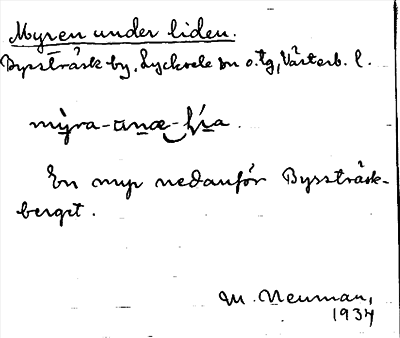 Myren under liden.
Byssträsk by, Lycksele sn o. tg, Västerb. l.
mỳra-
En myr nedanför Byssträsk-
berget.
M. Neuman,
1934